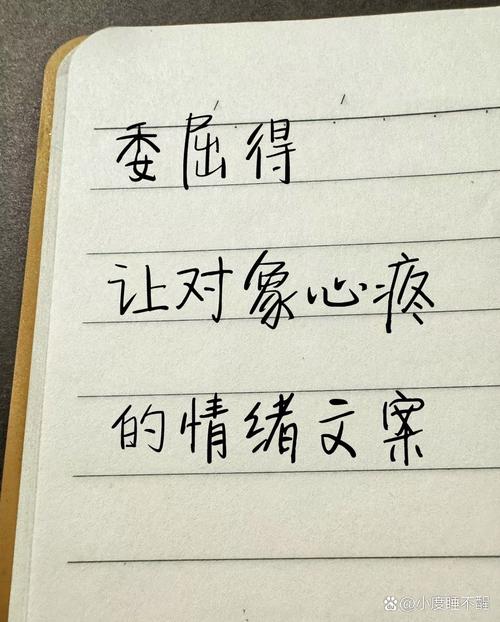 委屈得
让对象心疼
的情绪文案
小度睡不醒